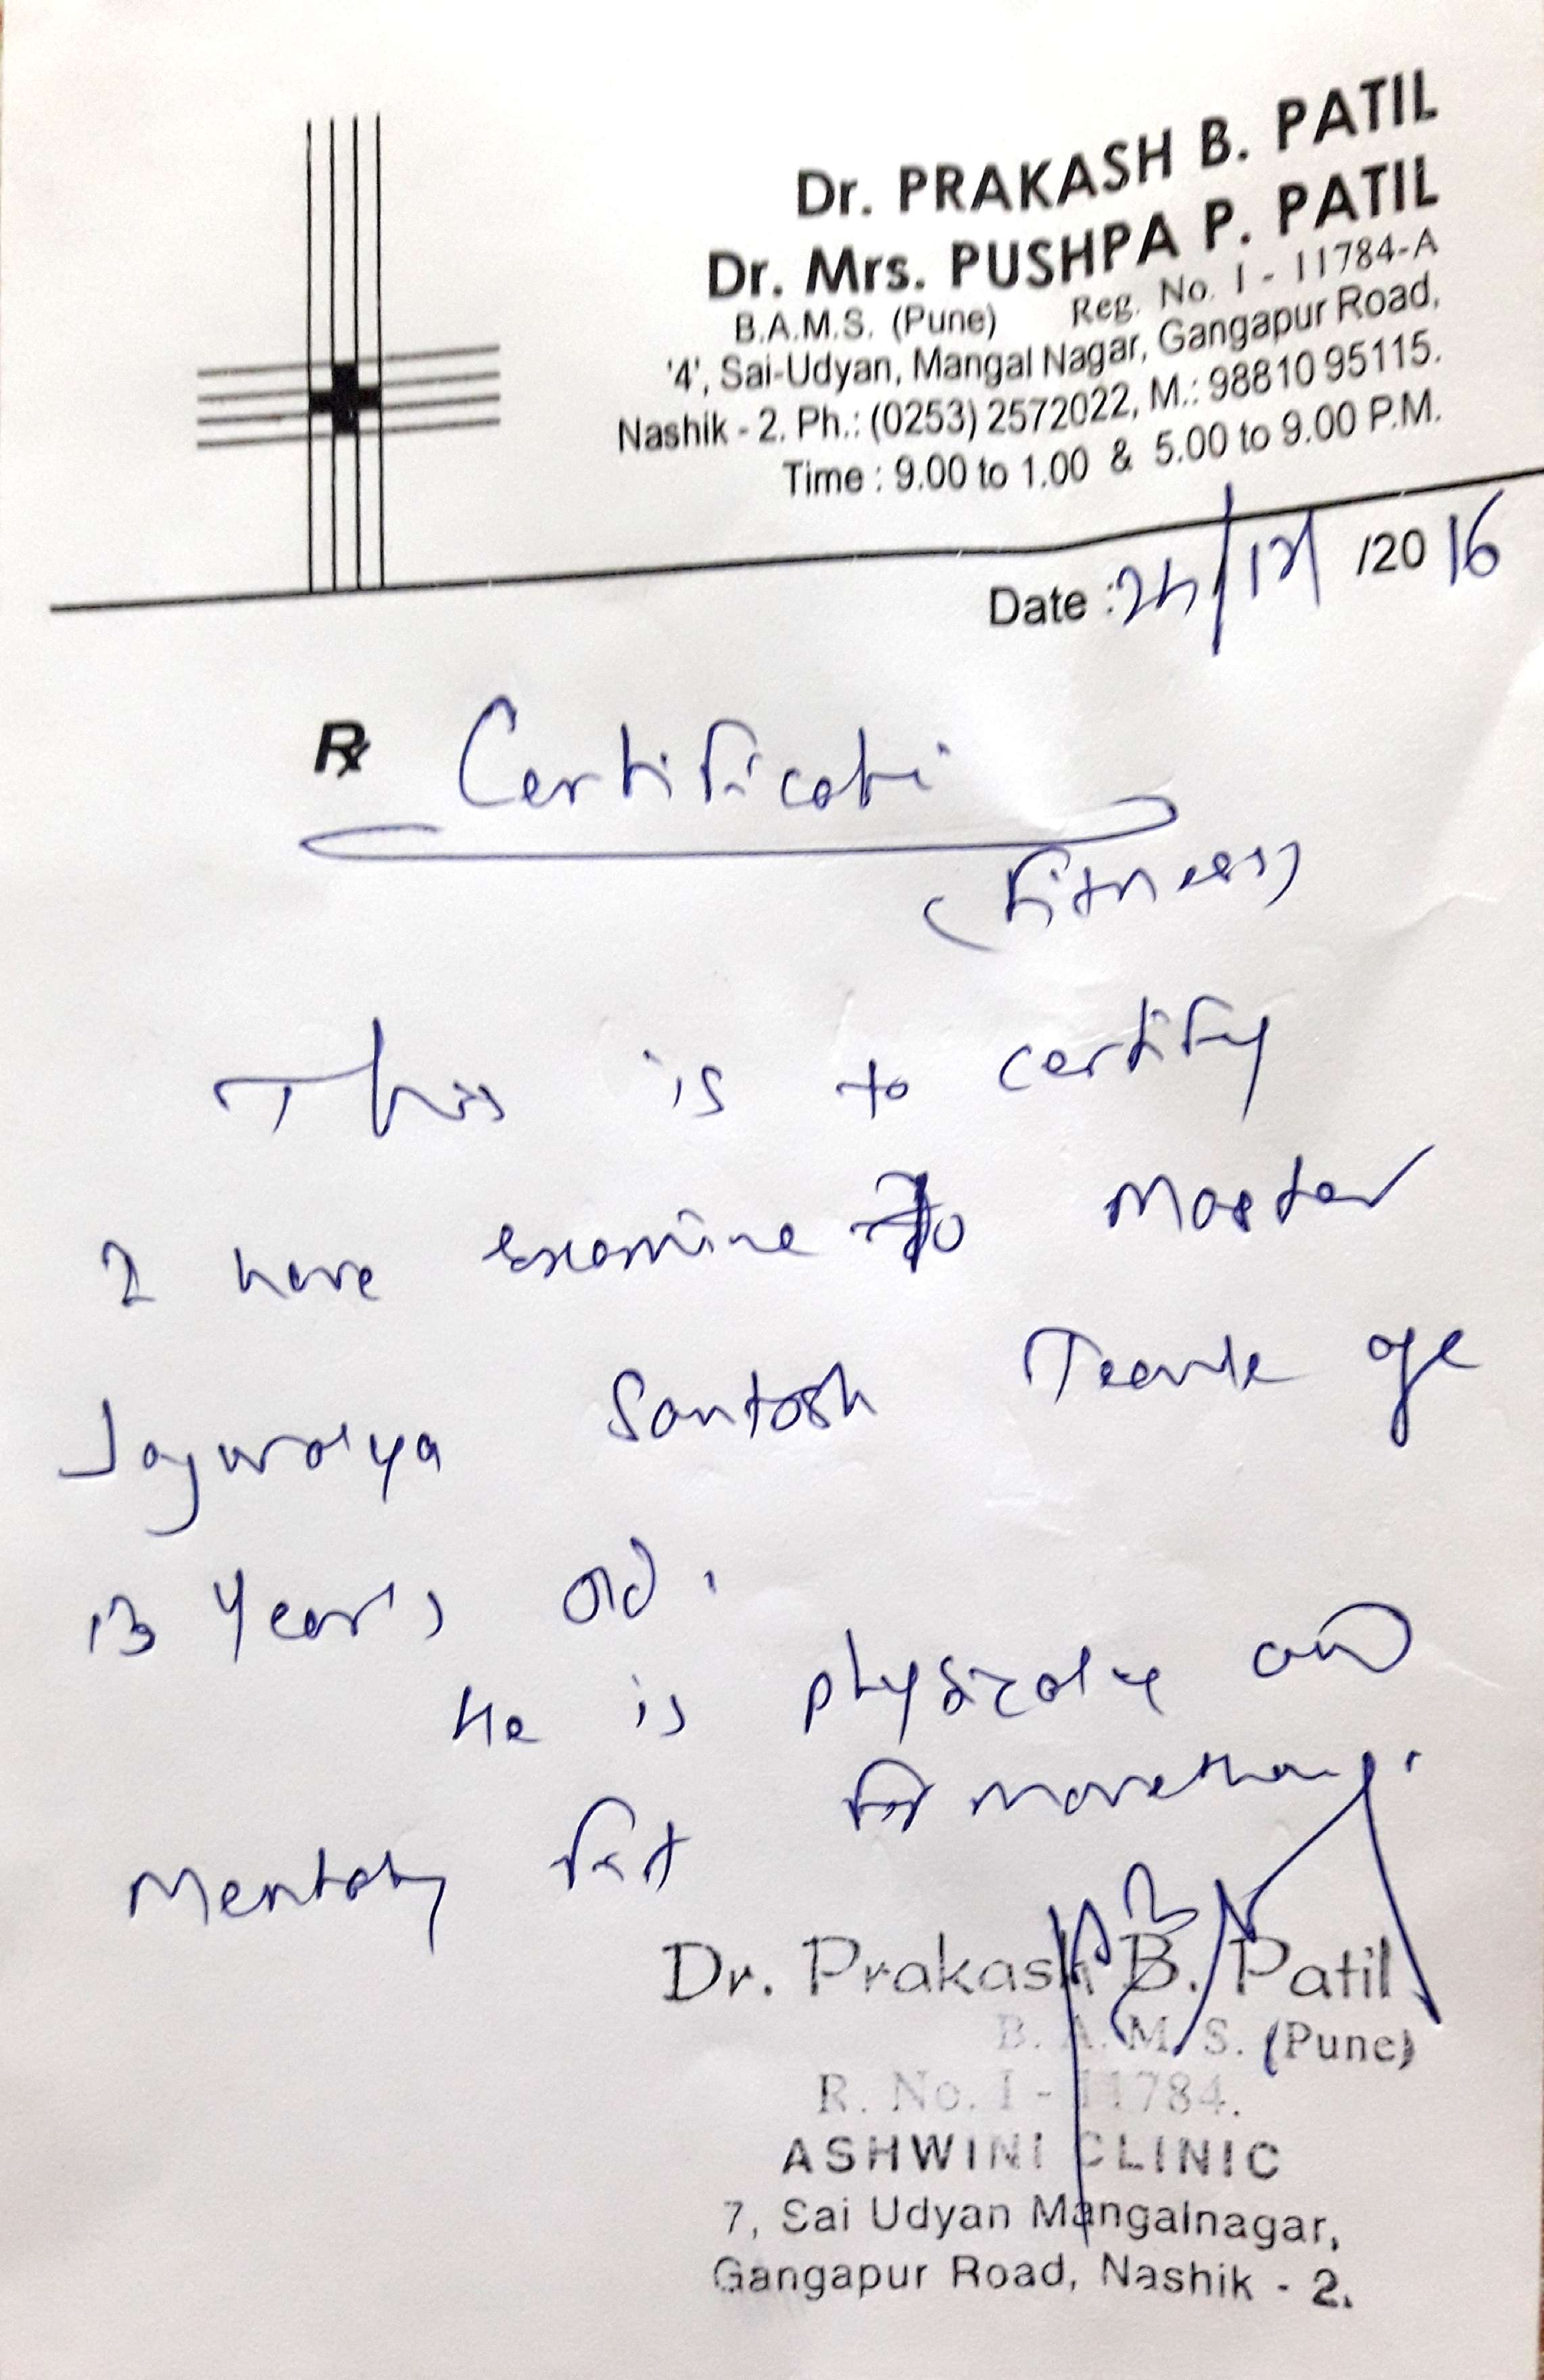 Dr. PRAKASH B. PATIL
Dr. Mrs. PUSHPA P. PATIL
B.A.M.S. (Pune) Reg. No. I - 11784-A
'4', Sai-Udyan, Mangal Nagar, Gangapur Road,
Nashik - 2. Ph.: (0253) 2572022, M.: 98810 95115.
Time : 9.00 to 1.00 & 5.00 to 9.00 P.M.
Date : /12/2016
Rx Certificate
(Fitness)
This is to certify
I have examine to Master
Santosh age
13 Year's old.
He is physically and
Mentaly fit for marathon.
Dr. Prakash B. Patil
B. A. M. S. (Pune)
R. No. I - 11784.
ASHWINI CLINIC
7, Sai Udyan Mangalnagar,
Gangapur Road, Nashik - 2.